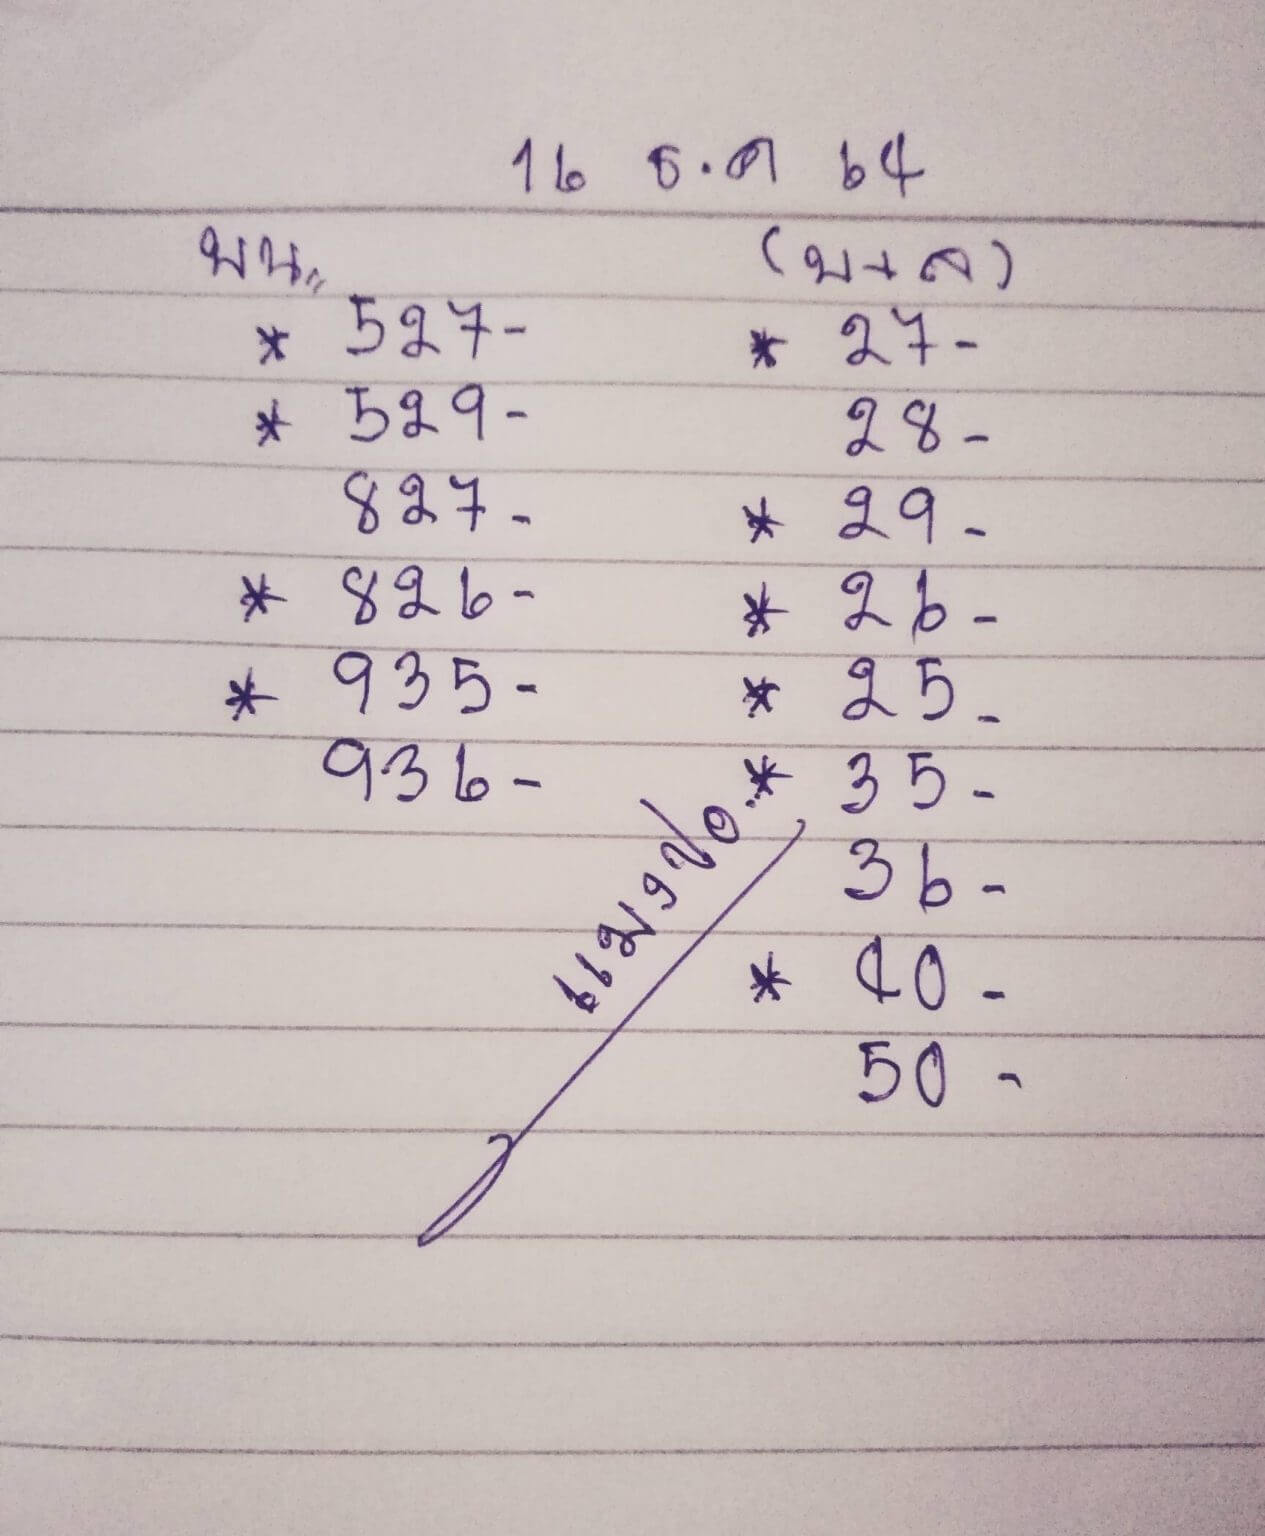 16 ธ.ค 64
บน,,
* 527-
* 529-
827-
* 826-
* 935-
936-
(บ+ล)
* 27-
28-
* 29-
* 26-
* 25-
* 35-
36-
* 40-
50-
แมงปอ